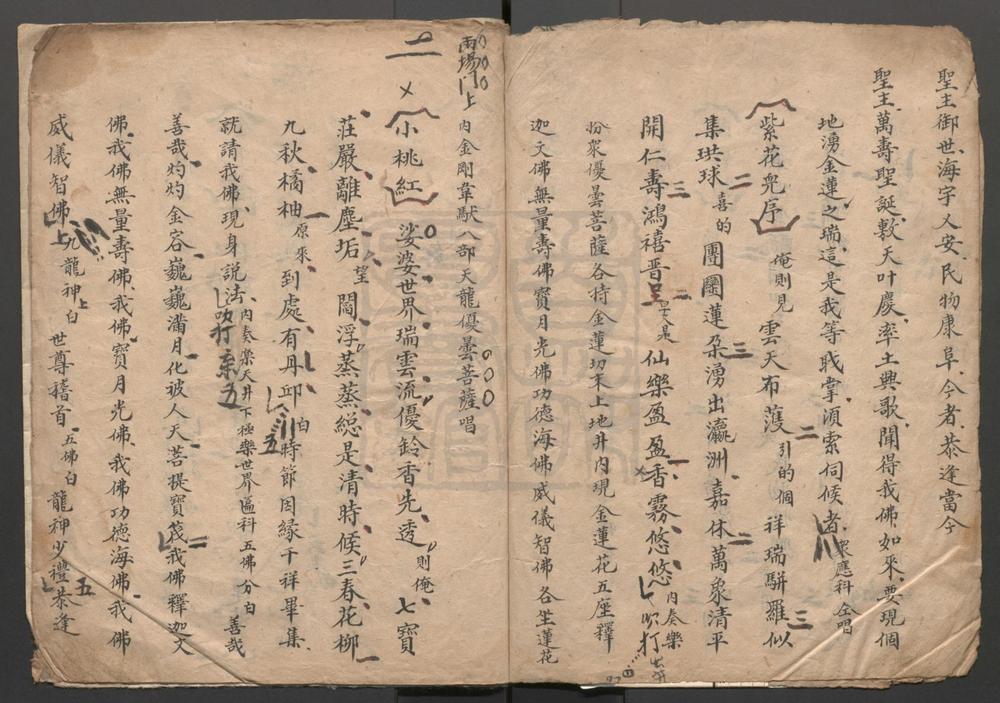 聖主御世海宇乂安民物康阜今者恭逢當今
聖主萬壽聖誕敷天叶慶率土興歌聞得我佛如來要現個
地湧金蓮之瑞這是我等職掌湏索伺候者衆應科仝唱
紫花兒序 俺則見雲天布濩引的個祥瑞駢羅似
集珙球喜的團團蓮朵湧出瀛洲嘉休萬象清平
開仁壽鴻禧晋呈是仙樂盈盈香霧悠悠內奏樂吹打
扮衆優曇菩薩各持金蓮切末上地井內現金蓮花五座釋
迦文佛無量壽佛寳月光佛功德海佛威儀智佛各坐蓮花
兩場門上 內金剛韋馱八部天龍優曇菩薩唱
二
小桃紅 娑婆世界瑞雲流優鈴香先透則俺七寳
莊嚴離塵垢望閻浮蒸蒸総是清時候三春花柳
九秋橘柚原來到處有丹邱白時節因緣千祥畢集
就請我佛現身說法內奏樂天井下極樂世界匾科五佛分白善哉
吹打
善哉灼灼金容巍巍滿月化被人天菩提寳筏我佛釋迦文
佛我佛無量壽佛我佛寳月光佛我佛功德海佛我佛
威儀智佛九龍神上白世尊稽首五佛白龍神少禮恭逢